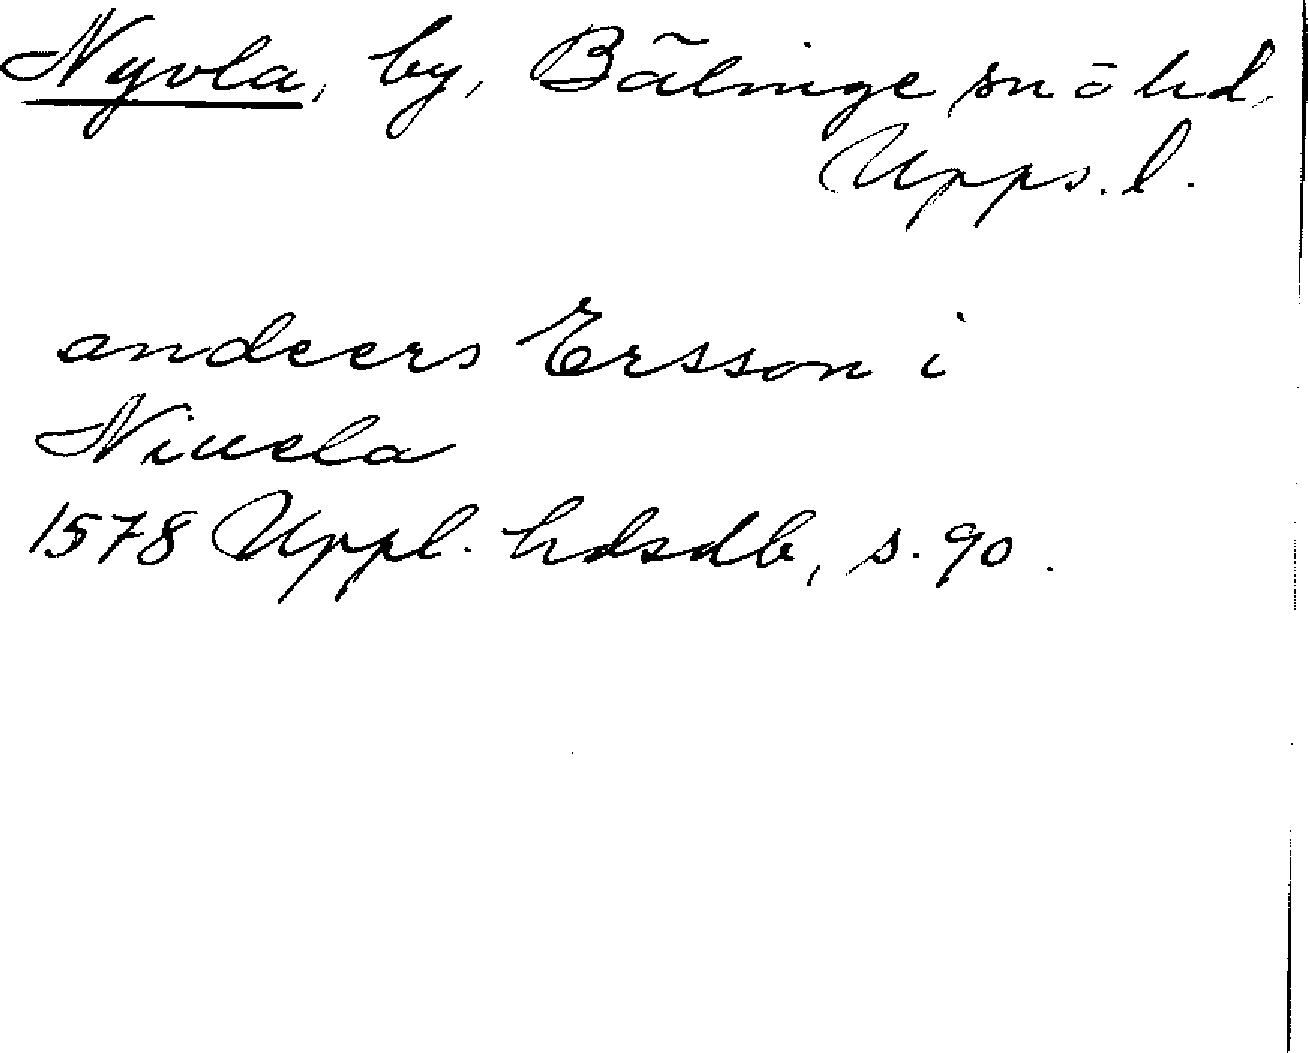 Nyvla, by, Bälinge sn ö hd,
Upps. l.
andeers Ersson i
Niuela
1578 Uppl. hdsdb, s. 90.